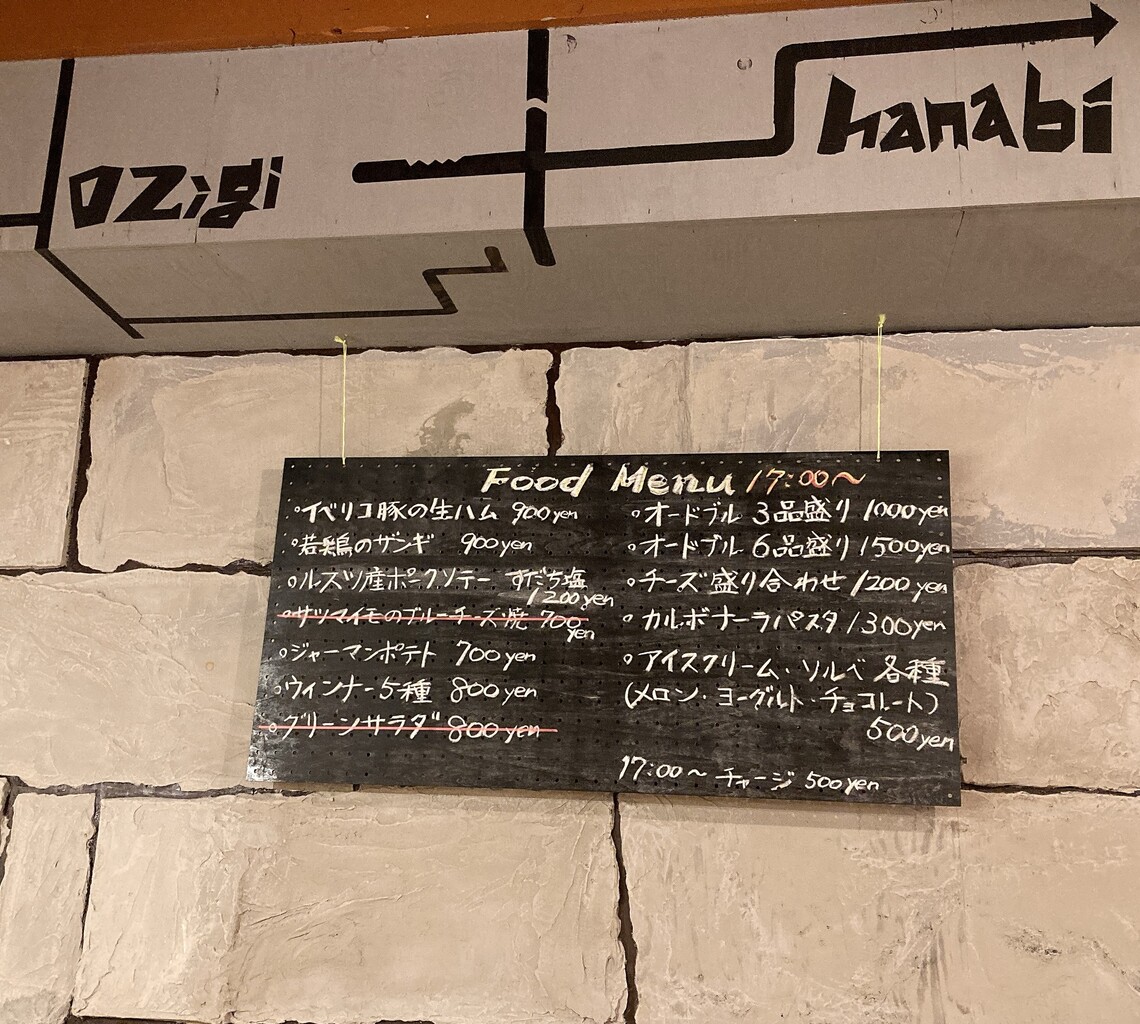 ozigi
hanabi
Food Menu 17:00〜
○イベリコ豚の生ハム 900yen
○若鶏のザンギ 900yen
○ルスツ産ポークソテー すだち塩
1200yen
○サツマイモのブルーチーズ焼 700
yen
○ジャーマンポテト 700yen
○ウィンナー5種 800yen
○グリーンサラダ 800yen
○オードブル 3品盛り 1000yen
○オードブル 6品盛り 1500yen
○チーズ盛り合わせ 1200yen
○カルボナーラパスタ 1300yen
○アイスクリーム・ソルベ 各種
(メロン・ヨーグルト・チョコレート)
500yen
17:00〜 チャージ 500yen